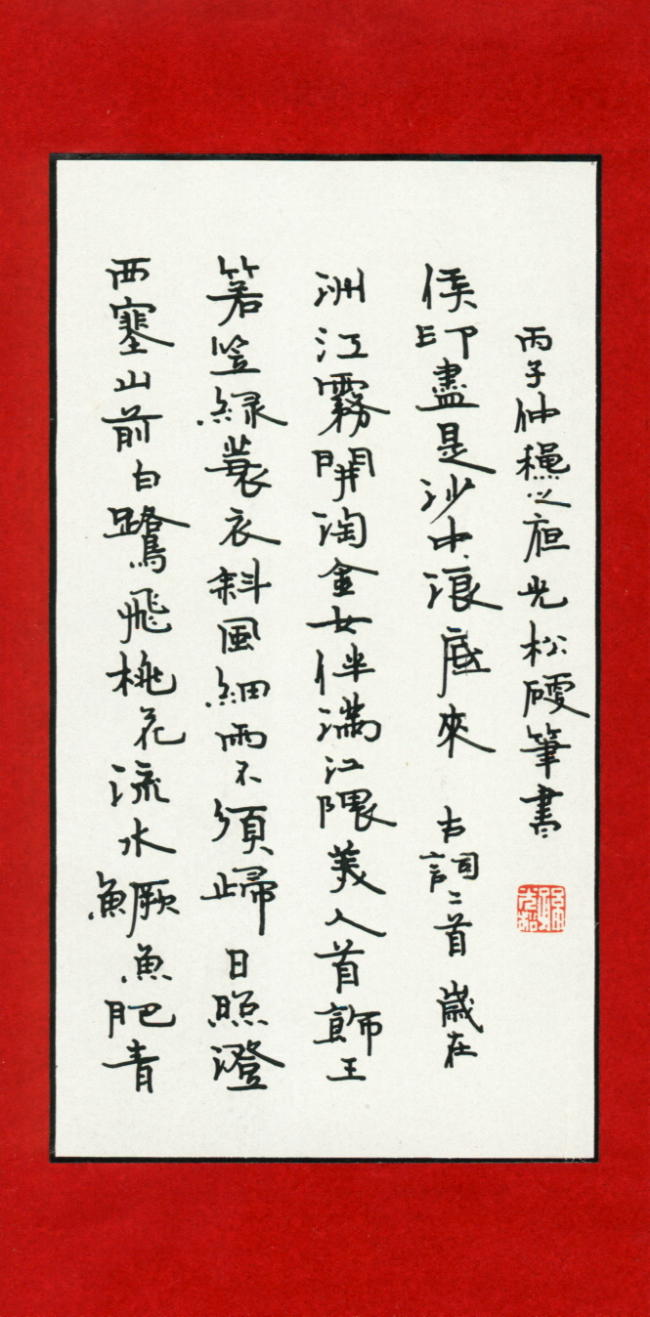 西塞山前白鷺飛桃花流水鱖魚肥青
箬笠緑蓑衣斜風細雨不須歸 日照澄
洲江霧開淘金女伴滿江隈美人首飾王
侯印盡是沙中浪底來 古詞二首 歲在
丙子仲穐之光松硬筆書